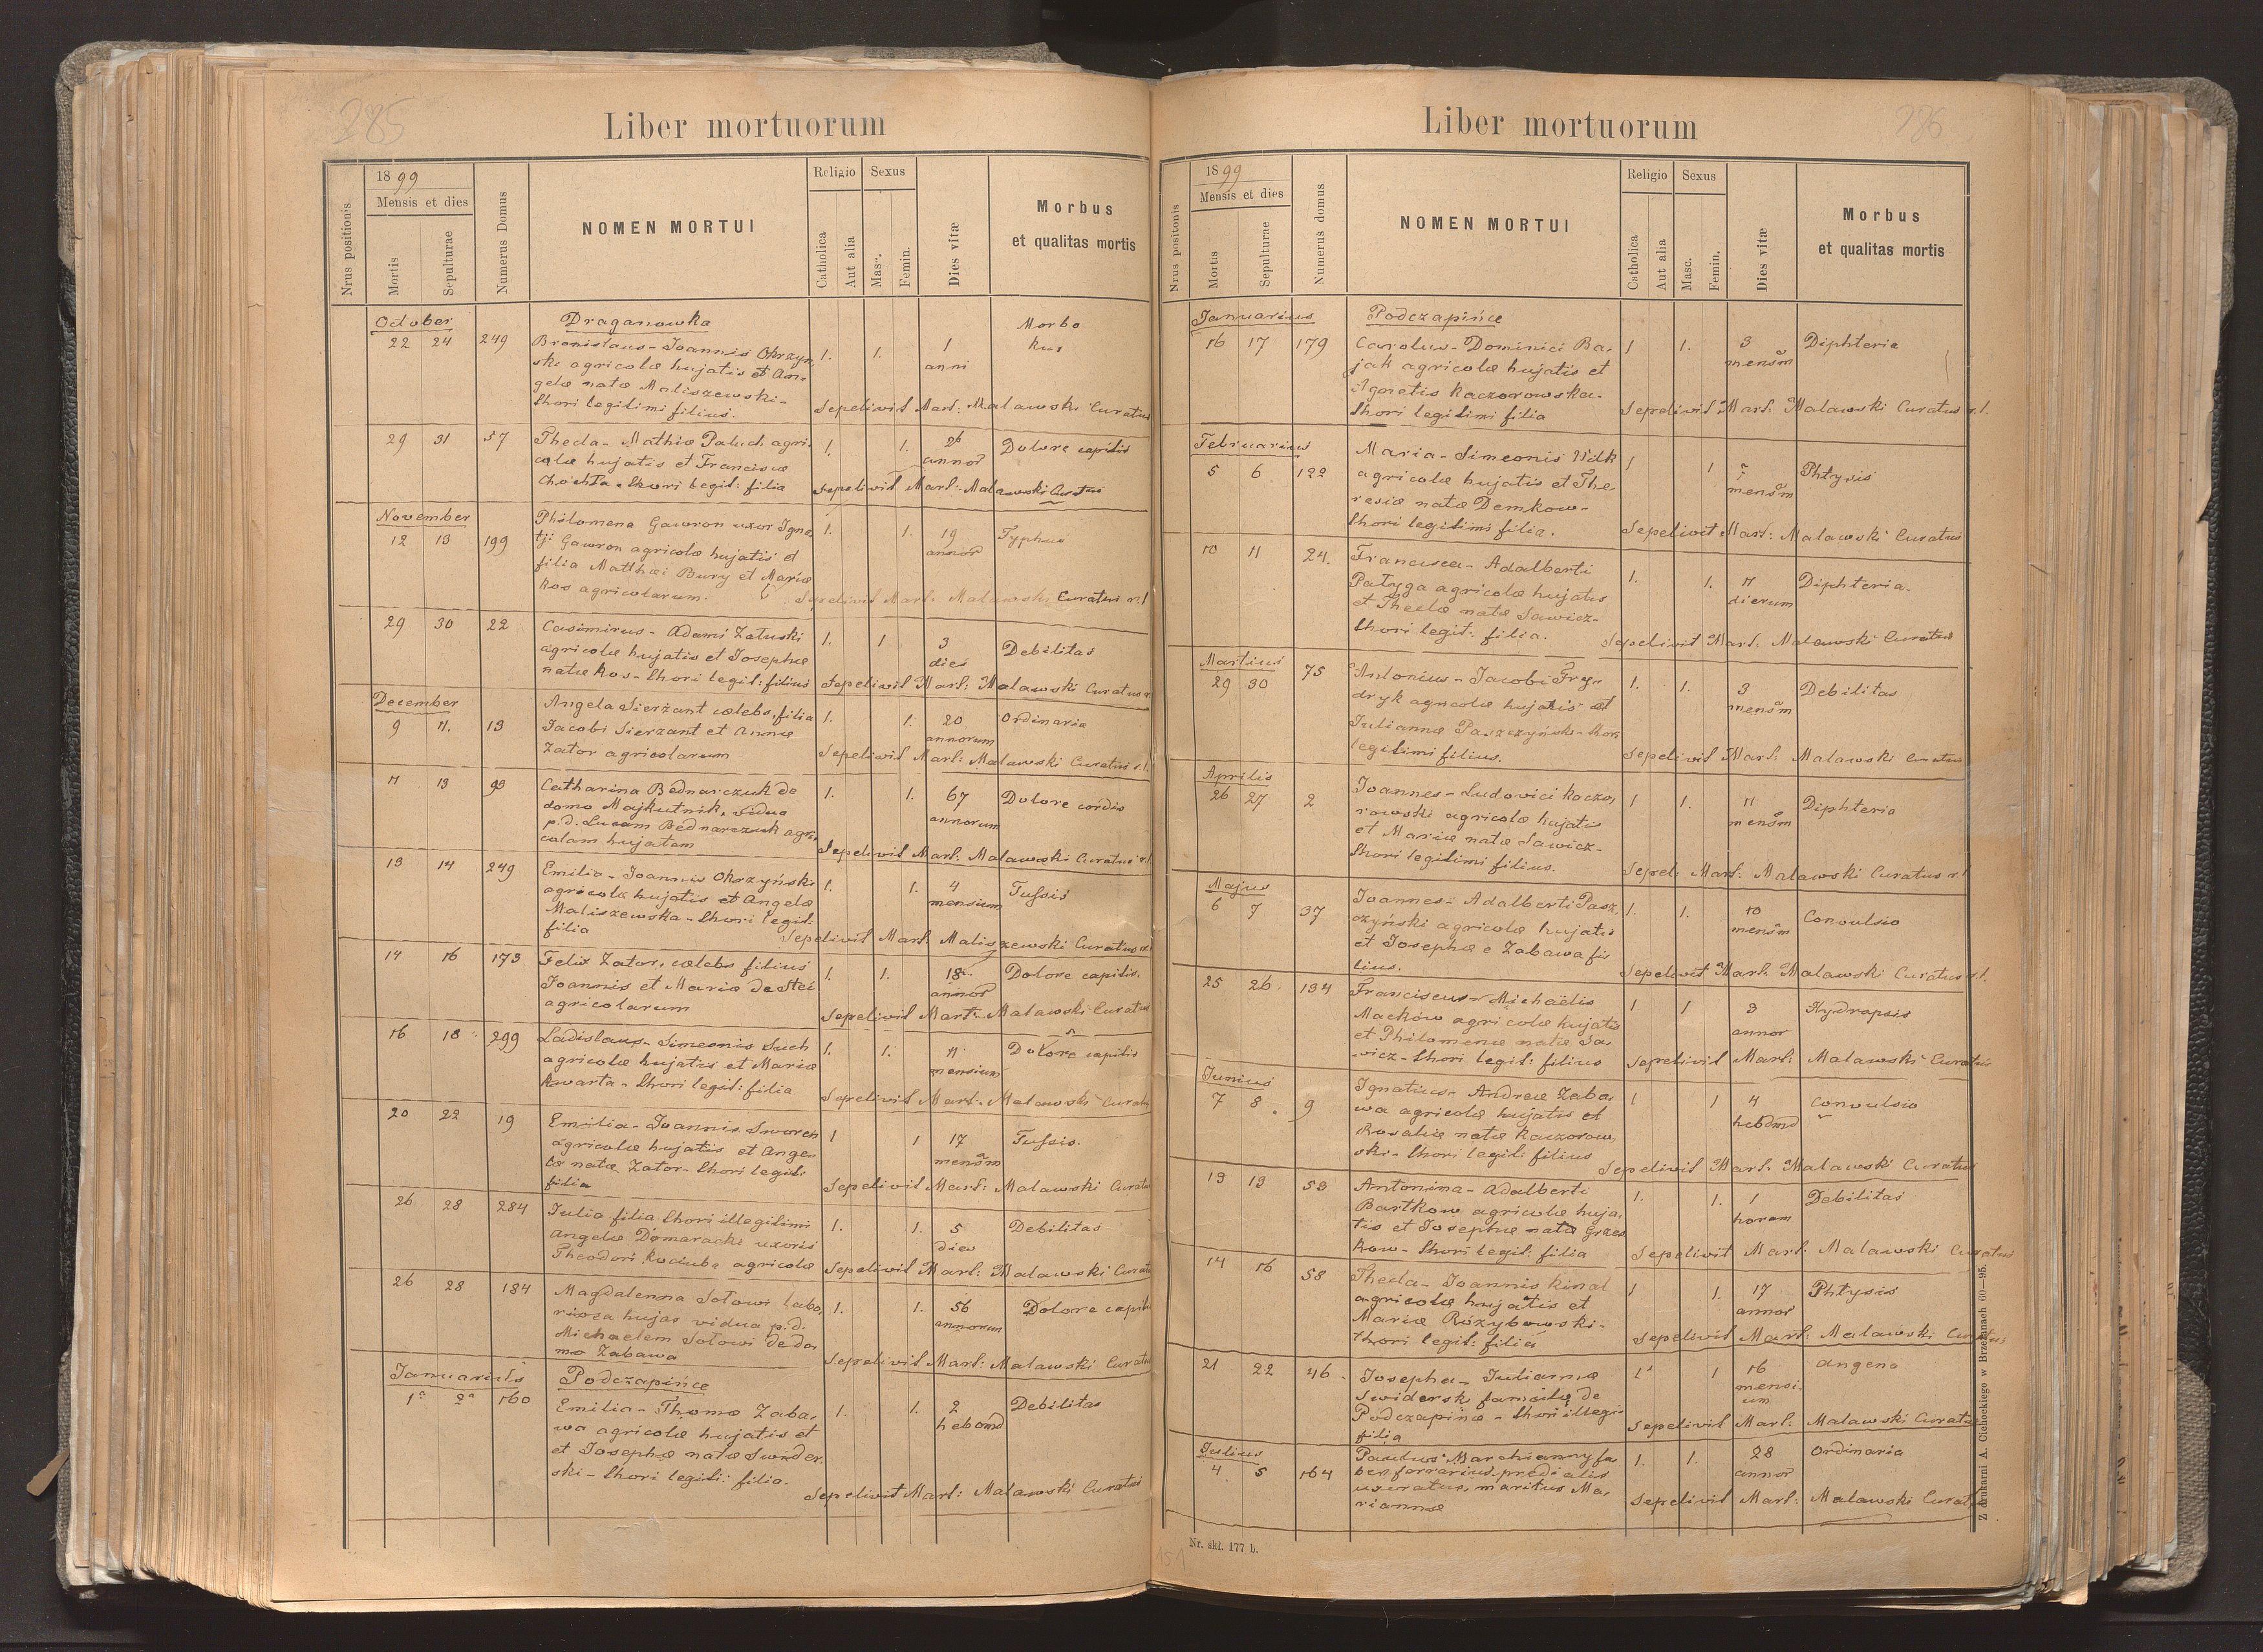 285
Liber mortuorum
Nrus positionis
1899
Mensis et dies
Mortis
Sepulturae
Numerus Domus
NOMEN MORTUI
Religio
Catholica
Aut alia
Sexus
Masc.
Femin.
Dies vitæ
Morbus
et qualitas mortis
October
Draganowka
22 24 249 Bronislaus - Joannis Okrzyn 1. 1. 1 Morbo
ski agricolæ hujatis et An= anni
gelæ natæ Maliszewski -
thori legitimi filius. Sepelivit Mart: Malawski Curatus
29 31 57 Thecla - Mathiæ Paluch agri= 1. 1. 26 Dolore capitis
colæ hujatis et Franciscæ annor
thori legit: filia Sepelivit Mart: Malawski Curatus
November
12 13 199 Philomena Gawron uxor Igna 1. 1. 19 Typhus
tji Gawron agricolæ hujatis et annor
filia Matthæi Bury et Mariæ
Kos agricolarum. Sepelivit Mart: Malawski Curatus r.l
29 30 22 Casimirus - Adami Załuski 1. 1 3 Debilitas
agricolæ hujatis et Josephæ dies
natæ Kos - thori legit: filius Sepelivit Mart: Malawski Curatus r.
December
9 11. 13 Angela Sierżant cœlebs, filia 1. 1. 20 Ordinaria
Jacobi Sierzant et Annæ annorum
Zator agricolarum Sepelivit Mart: Malawski Curatus r.l.
11 13 99 Catharina Bednarczuk de 1. 1. 67 Dolore cordis
domo Majkutnik, vidua annorum
p.d. Lucam Bednarczuk agri=
colam hujatem Sepelivit Mart: Malawski Curatus r.l
13 14 249 Emilia - Joannis Okrzyński 1. 1. 4 Tussis
agricolæ hujatis et Angelæ mensium
Maliszewska - thori legit:
filia Sepelivit Mart: Maliszewski Curatus r.
14 16 173 Felix Zator, cœlebs filius 1. 1. 18 Dolore capitis.
Joannis et Mariæ de Steć annor
agricolarum Sepelivit Mart: Malawski Curatus
16 18 299 Ladislaus - Simeonis Such 1. 1. 11 Dolore capitis
agricolæ hujatis et Mariæ mensium
Kwarta - thori legit: filia Sepelivit Mart: Malawski Curatus
20 22 19 Emilia - Joannis Sworen 1 1 17 Tussis.
agricolæ hujatis et Ange= mensm
læ natæ Zator - thori legit:
filia Sepelivit Mart: Malawski Curatus
26 28 284 Julia filia thori illegitimi 1. 1. 5 Debilitas
Angelæ Domaracki uxoris dies
Theodori Kociuba agricolæ Sepelivit Mart: Malawski Curatus
26 28 184 Magdalenna Sołowi labo, 1. 1. 56 Dolore capitis
riosa hujas vidua p.d. annorum
Michaelem Sołowi de do=
mo Zabawa Sepelivit Mart: Malawski Curatus
Januarius
Podczapińce
1ª 2ª 160 Emilia - Thomæ Zaba, 1. 1. 2 Debilitas
wa agricolæ hujatis et hebomd
et Josephæ natæ Swider
ski - thori legiti: filia.
Sepelivit Mart: Malawski Curatus
286
Liber mortuorum
Nrus positonis
1899
Mensis et dies
Mortis
Sepulturae
Numerus domus
NOMEN MORTUI
Religio
Catholica
Aut alia
Sexus
Masc.
Femin.
Dies vitæ
Morbus
et qualitas mortis
Januarius
Podczapińce
16 17 179 Carolus - Dominici Ba, 1 1. 3 Diphteria
jak agricolæ hujatis et mensm
Agnetis Kaczorowska -
thori legitimi filia Sepelivit Mart: Malawski Curatus r.l.
Februarius
5 6 122 Maria - Simeonis Wilk 1 1 Phtysis
agricolæ hujatis et The= mensm
resiæ natæ Demkow -
thori legitimi filia. Sepelivit Mart: Malawski Curatus
10 11 24. Francisca - Adalberti 1. 1. 11 Diphteria.
Patyga agricolæ hujatis dierum
et Theclæ natæ Sawicz -
thori legit: filia. Sepelivit Mart: Malawski Curatus
Martius
29 30 75 Antonius - Jacobi Fry= 1. 1. 3 Debilitas
dryk agricolæ hujatis et mensm
Juliannæ Paszczyński - thori
legitimi filius. Sepelivit Mart: Malawski Curatus
Aprilis
26 27 2 Joannes - Ludovici Kaczo, 1 1. 11 Diphteria
rowski agricolæ hujatis mensm
et Mariæ natæ Sawicz -
thori legitimi filius. Sepel: Mart: Malawski Curatus r.l
Majus
6 7 37 Joannes - Adalberti Pasz, 1. 1. 10 Convulsio
czyński agricolæ hujatis mensm
et Josephæ e Zabawa fi
lius. Sepelivit Mart: Malawski Curatus r.l.
25 26. 134 Franciscus - Michaëlis 1 1 3 Hydropsis
Macków agricolæ hujatis annor
et Philomenæ natæ Sa,
wicz - thori legit: filius Sepelivit Mart: Malawski Curatus
Junius
7 8. 9 Ignatius - Andreæ Zaba, 1 1 4 Convulsio
wa agricolæ hujatis et hebdmd
Rosaliæ natæ Kaczorow,
ski - thori legit: filius Sepelivit Mart: Malawski Curatus
13 13 53 Antonina - Adalberti 1. 1. 1 Debilitas
Bartkow agricolæ huja, horam
tis et Josephæ natæ Grzes
kow - thori legit: filia Sepelivit Mart: Malawski Curatus
14 16 58 Thecla - Joannis Kinal 1 1. 17 Phtysis
agricolæ hujatis et annor
Mariæ Rozybowski -
thori legit: filia Sepelivit Mart: Malawski Curatus
21 22 46. Josepha - Juliannæ 1 1 16 Angena
Swiderski famulæ de mensi=
Podczapińce - thori illegi= um
filia Sepelivit Mart: Malawski Curatus
Julius
4. 5 164 Paulus Marchianny fa 1. 1. 28 Ordinaria
ber ferrarius prædialis annor
uxoratus, maritus Ma,
riannæ Sepelivit Mart: Malawski Curatus
Nr. skł. 177 b.
151
Z drukarni A. Cichockiego w Brzeżanach 60—95.